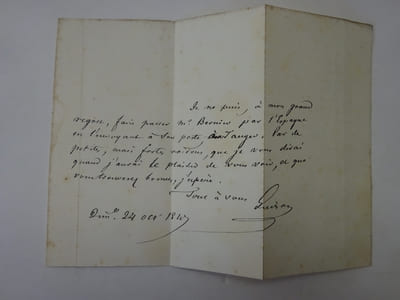 Je ne puis, à mon grand
regret, faire passer Mr. Bernier par l'Espagne
en l'envoyant à son poste à Tanger. Par de
petites, mais fortes raisons, que je vous dirai
quand j'aurai le plaisir de vous voir, et que
vous trouverez bonnes, j'espère.
Tout à vous
Guizot
Dimche. 24 oct